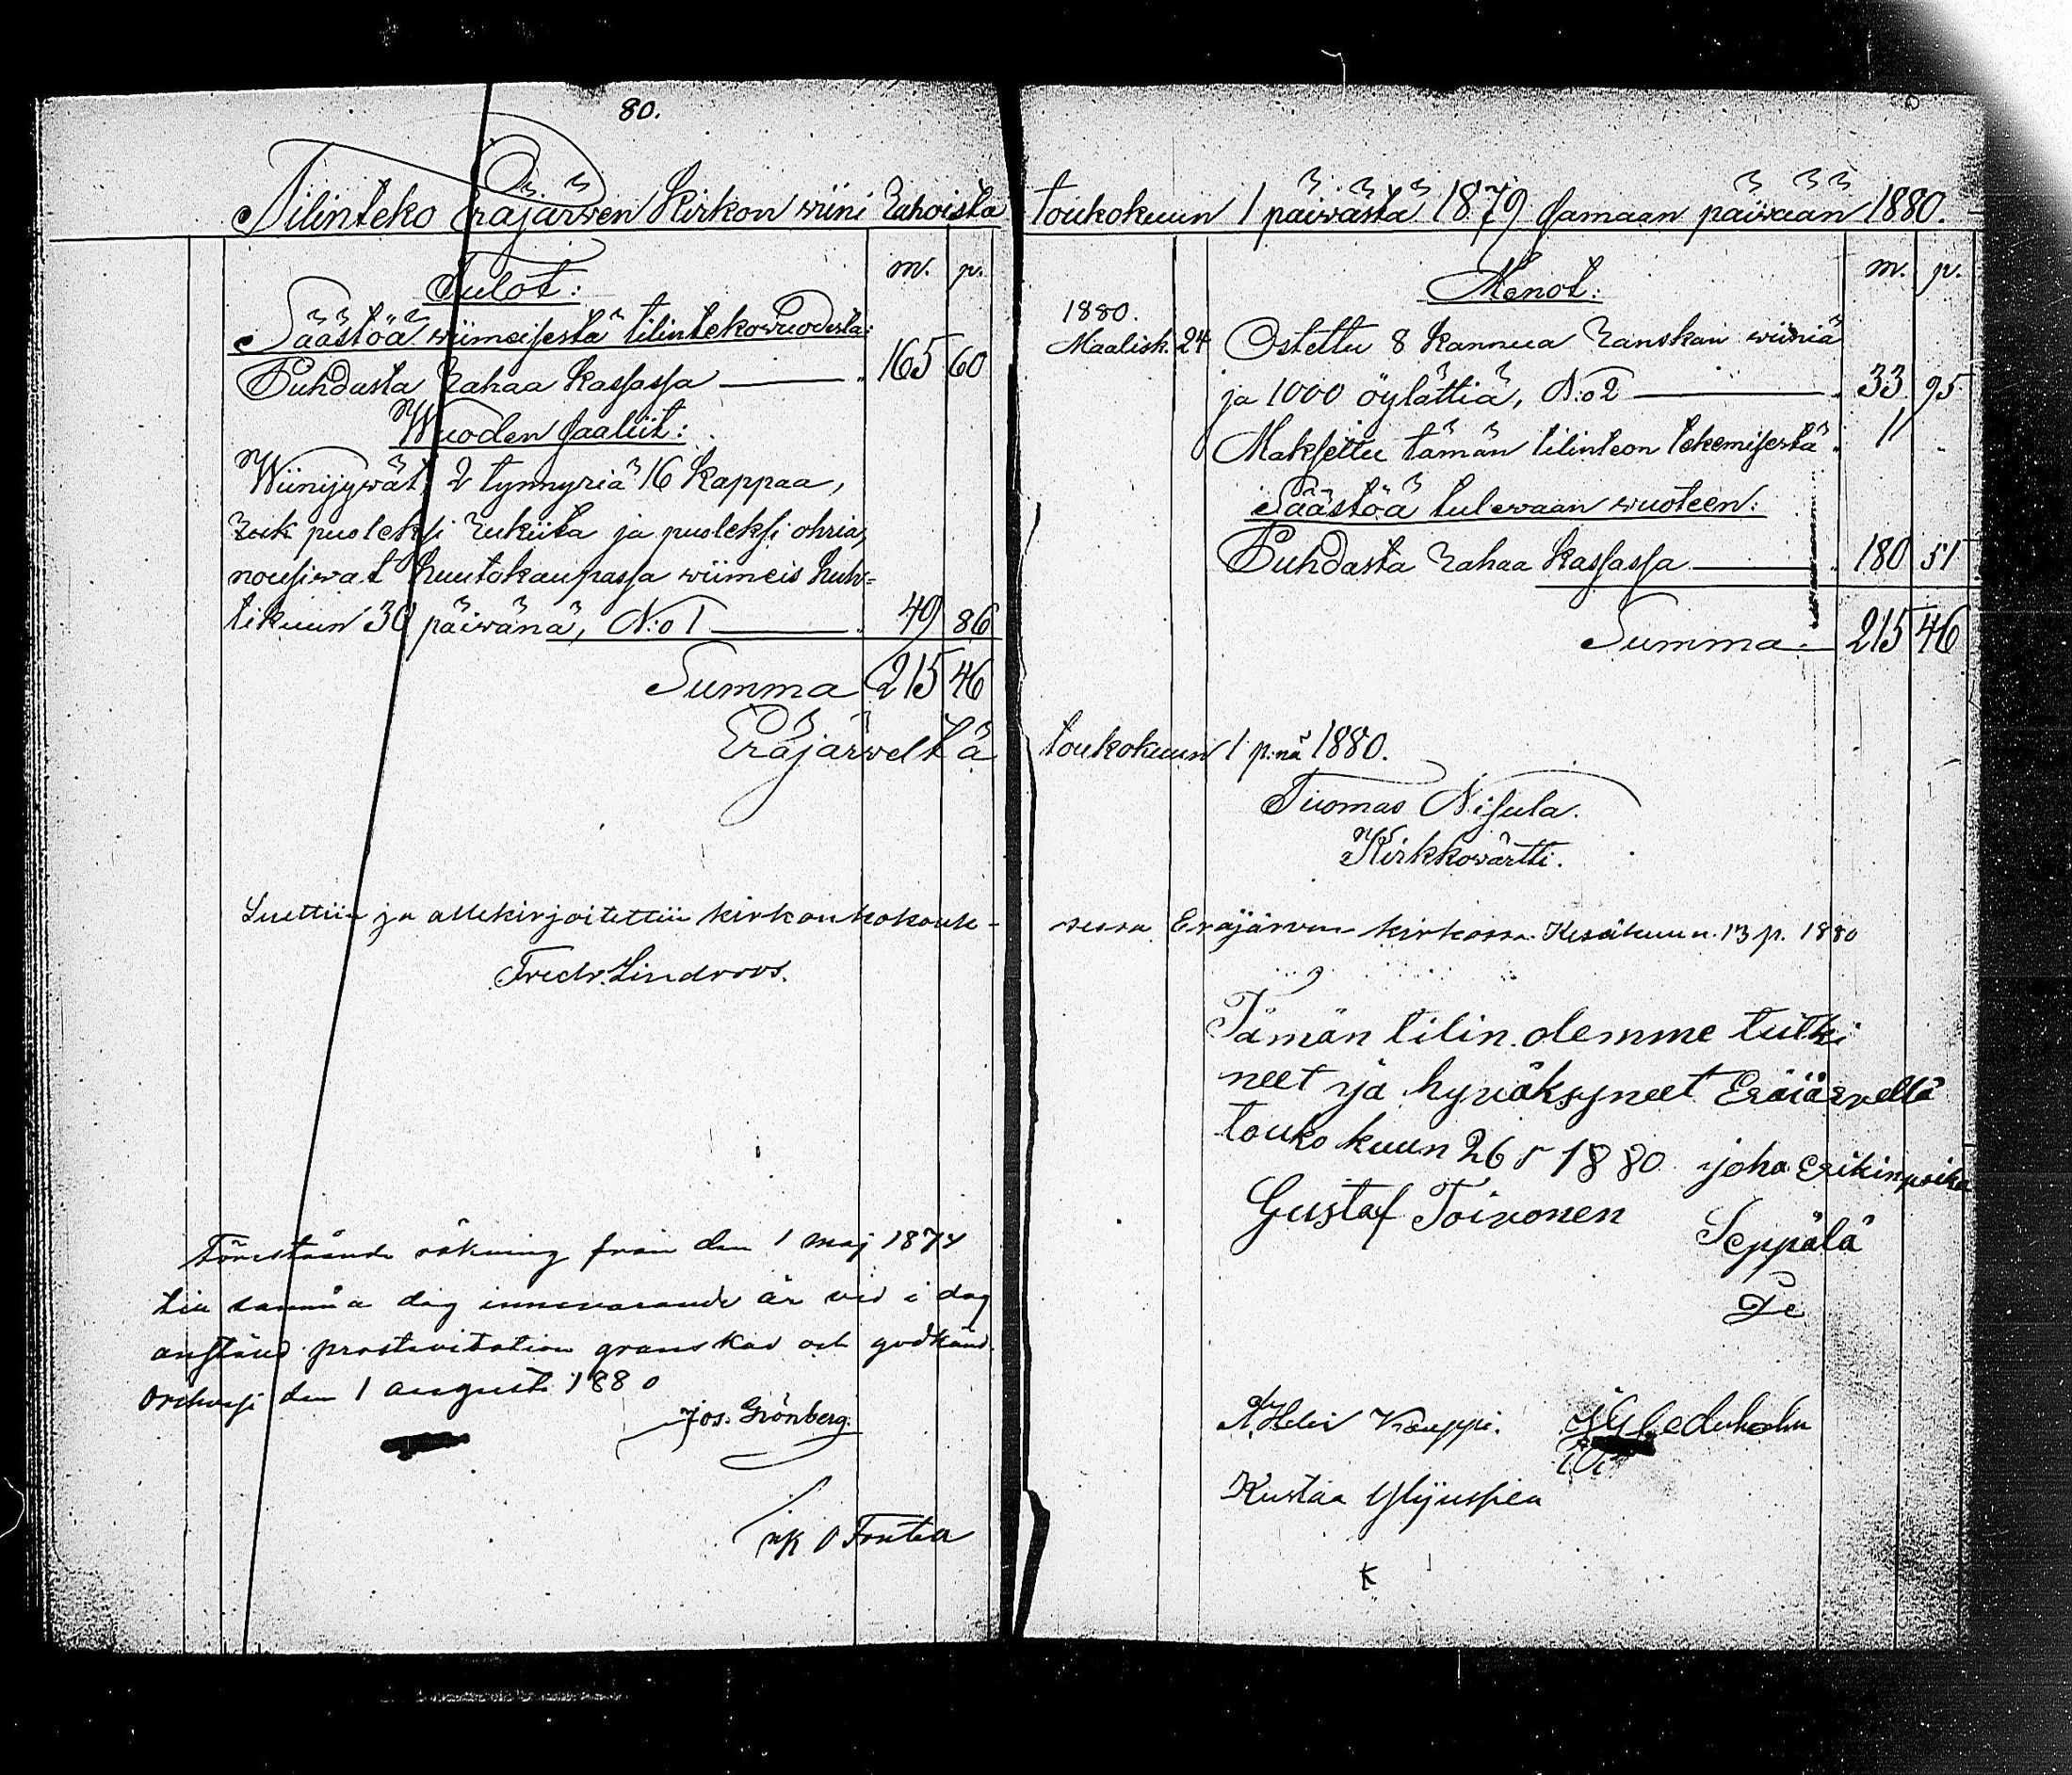 80.
Tilinteko Eräjärwen Kirkon wiini rahoista toukokuun 1 päiwästä 1879 samaan päiwään 1880.
Tulot:
m. p.
Säästöä wiimeisestä tilintekowuodesta:
Puhdasta rahaa kassassa 165 60
Wuoden saaliit:
Wiinijywät, 2 tynnyriä 16 kappaa,
puoleksi rukiita ja puoleksi ohria,
nousiwat huutokaupassa wiimeis huh-
tikuun 30 päiwänä, N:o 1 49 86
Summa 215 46
Menot:
m. p.
1880.
Maalisk. 24 Ostettu 8 kannua ranskan wiiniä
ja 1000 öylättiä, N:o 2 33 95
Maksettu tämän tilinteon tekemisestä 1 "
Säästöä tulewaan wuoteen:
Puhdasta rahaa kassassa 180 51
Summa 215 46
Eräjärweltä toukokuun 1 p:nä 1880.
Tuomas Nisula.
Kirkkowärtti.
Luettiin ja allekirjoitettiin kirkonkokouk-sessa Eräjärven kirkossa Kesäkuun 13 p. 1880
Fredr. Lindroos.
Tämän tilin olemme tutki
neet ja hyväksyneet Eräjärvellä
toukokuun 26 p 1880 joha Erikinpoika
Gustaf Toivonen Seppälä
Förestående räkning från den 1 maj 1879
till samma dag innevarande år vid i dag
anstäld prostvisitation granskad och godkänd.
Orihvesi den 1 august 1880
Jos. Grönberg.
Heli Kauppi.
Kustaa Ylijussila
K